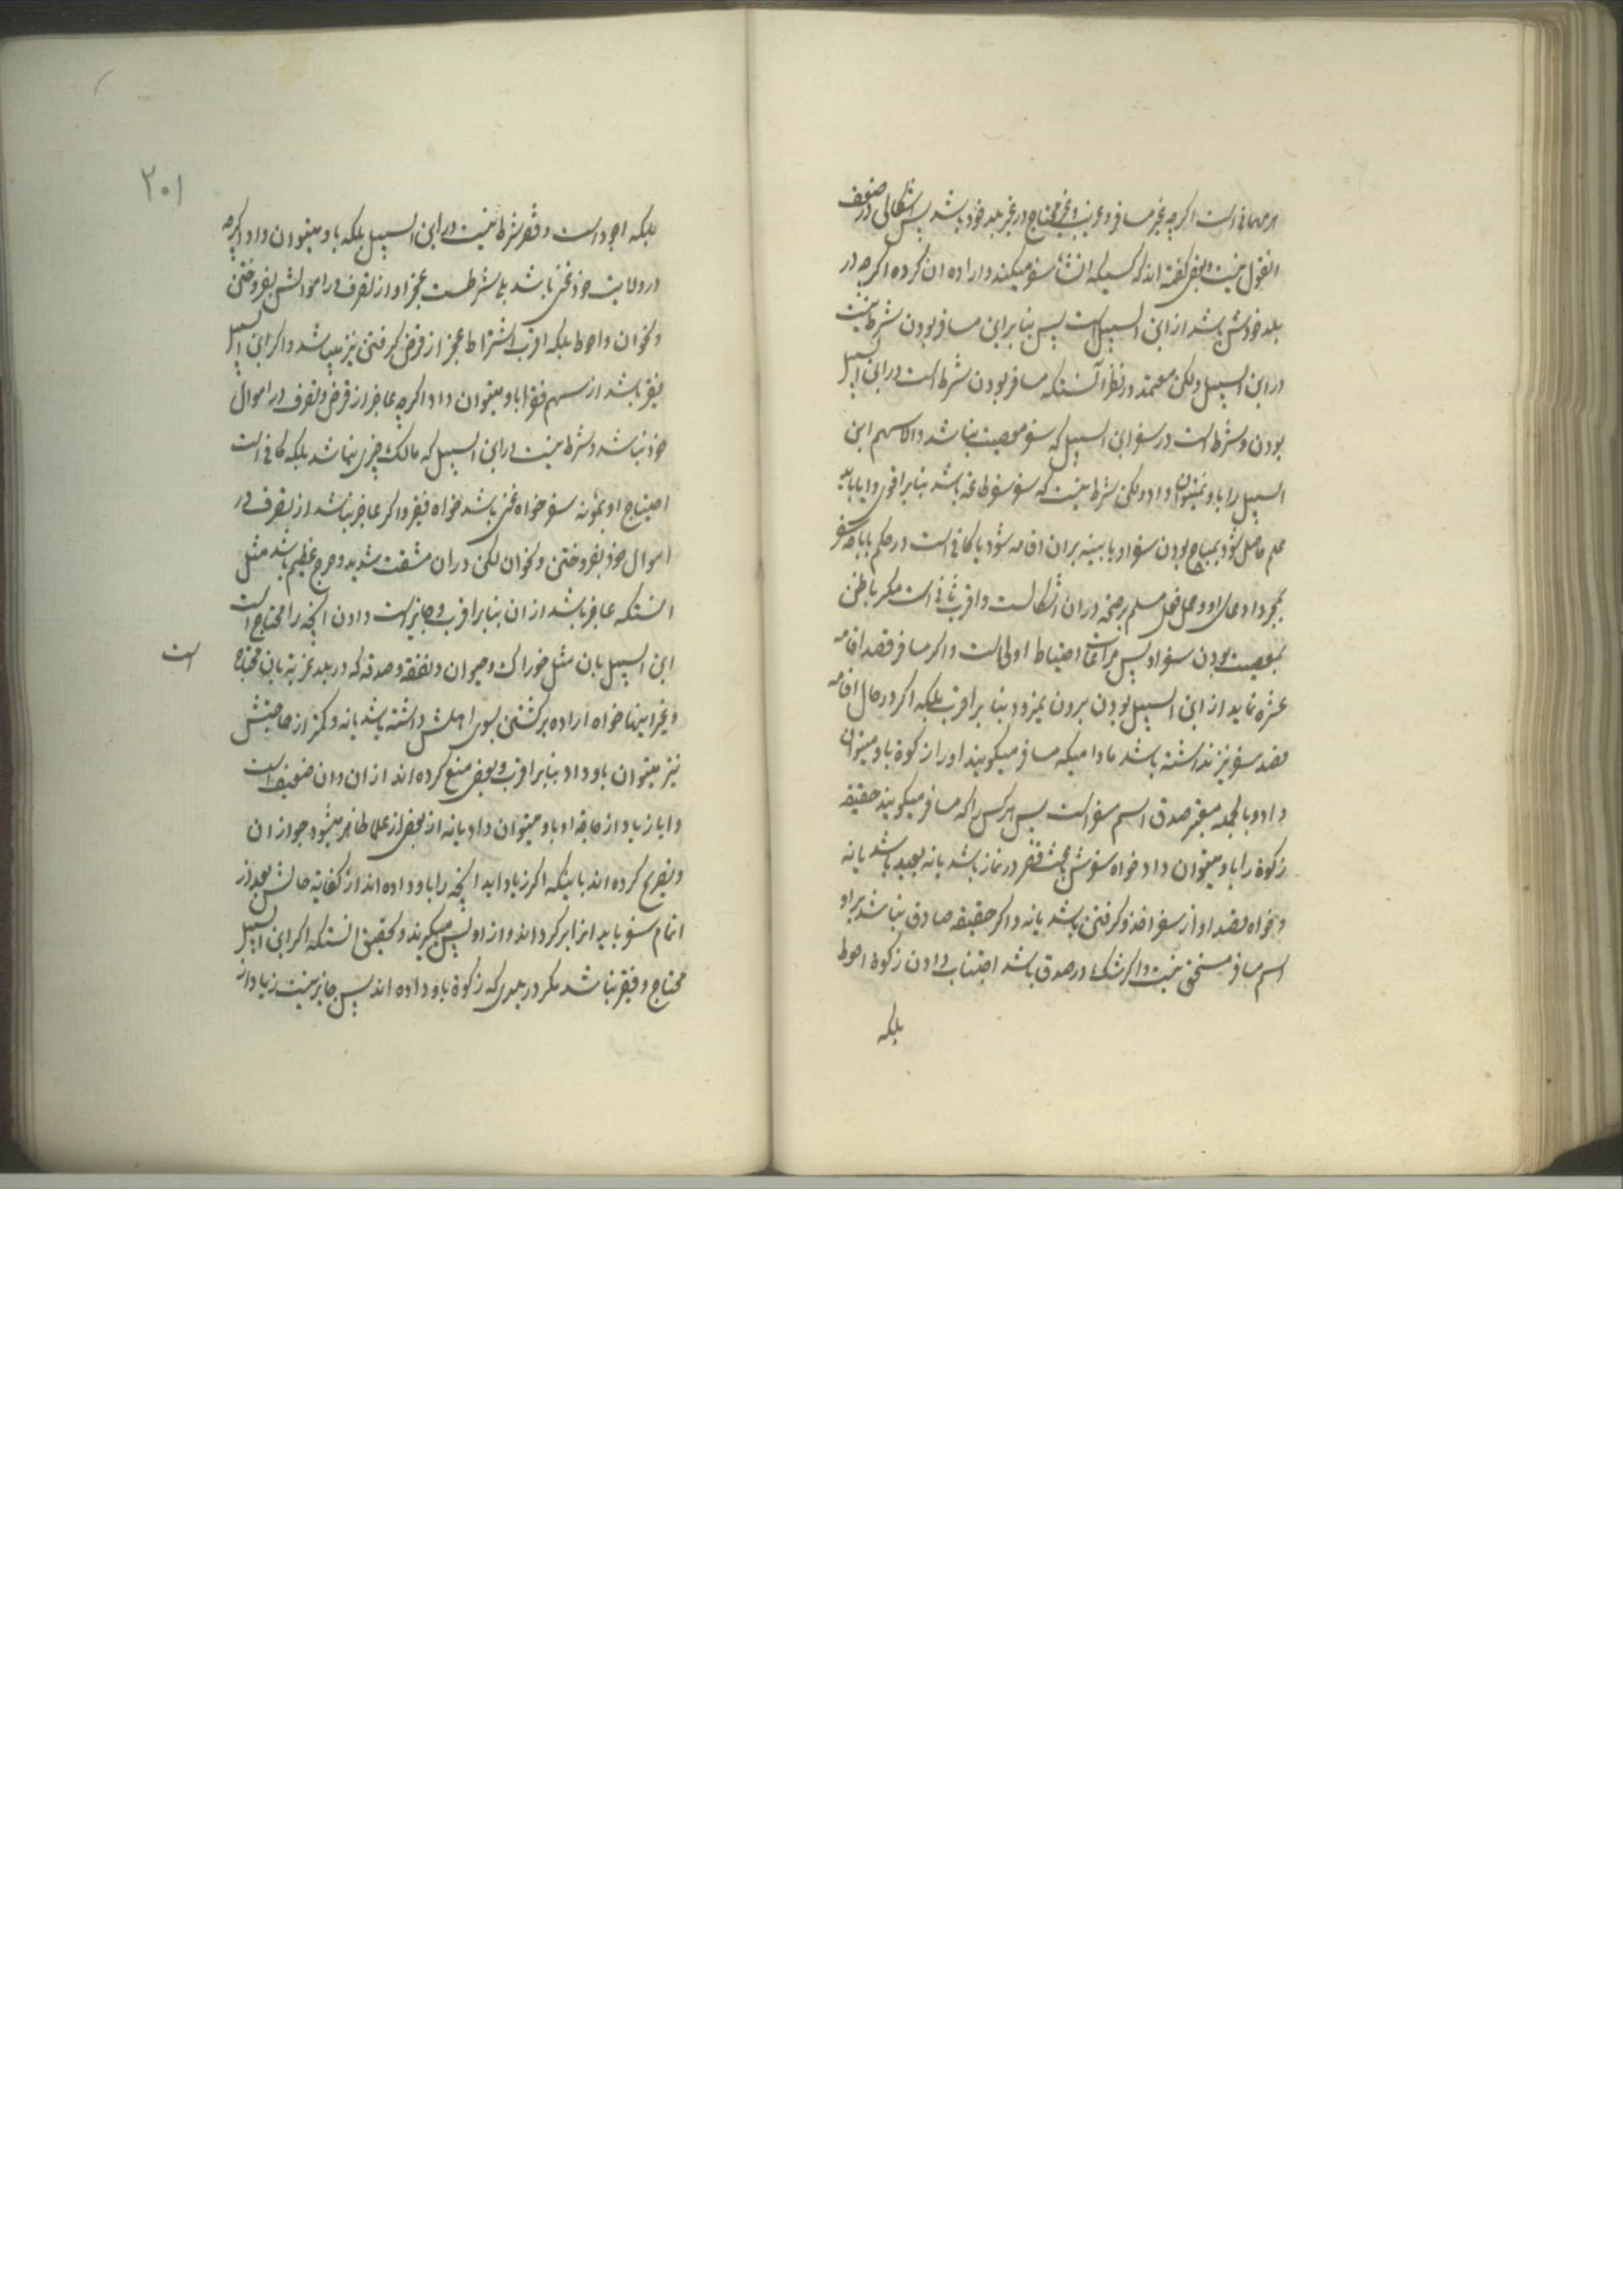 هر مهمانی است اکرچه غیر مسافر و غریب و غیر محتاج در غیر بلد خود باشد پس اشکالی در ضعف
این قول نیست و بعضی کفته اند که کسیکه انشاء سفر میکند و اراده ان کرده اکرچه در
بلد خودش باشد از ابن السبیل است پس بنابراین مسافر بودن شرط نیست
در ابن السبیل ولکن معتمد در نظر آنستکه مسافر بودن شرط است در ابن السبیل
بودن و شرط است در سفر ابن السبیل که سفر معصیت نباشد والا سهم ابن
السبیل را باو نمیتوان داد ولکن شرط نیست که سفر سفر طاعة باشد بنابر اقوی و ایا باید
علم حاصل شود بمباح بودن سفر او یا بینه بران اقامه شود یا کافی است در حکم باباحه سفر
مجرد ادعای او و حمل فعل مسلم بر صحة دران اشکالست و اقرب ثانی است مکر با ظن
بمعصیت بودن سفر او پس مراعات احتیاط اولی است و اکر مسافر قصد اقامه
عشره نماید از ابن السبیل بودن بیرون نمیرود بنا بر اقرب بلکه اکر در حال اقامه
قصد سفر نیز نداشته باشد مادامیکه مسافر میکویند او را زکوة باو میتوان
داد و بالجمله معتبر صدق اسم سفر است پس هر کس را که مسافر میکویند حقیقه
زکوة را باو میتوان داد خواه سفرش باعث قصر در نماز باشد یا نه بعید باشد یا نه
و خواه قصد او از سفر اخذ و کرفتن باشد یا نه و اکر حقیقه صادق نباشد بر او
اسم مسافر مستحق نیست و اکر شک در صدق باشد اجتناب دادن زکوة احوط
بلکه
۲۰۱
بلکه اجود است و فقر شرط نیست در ابن السبیل بلکه باو میتوان داد اکرچه
در ولایت خود غنی باشد بلی شرطست عجز او از تصرف در اموالش بفروختن
و نحو ان و احوط بلکه اقرب اشتراط عجز از قرض کرفتن نیز میباشد و اکر ابن السبیل
فقیر باشد از سهم فقرا باو میتوان داد اکرچه عاجز از قرض و تصرف در اموال
خود نباشد و شرط نیست در ابن السبیل که مالک چیزی نباشد بلکه کافی است
احتیاج او بمؤنه سفر خواه غنی باشد خواه فقیر و اکر عاجز نباشد از تصرف در
اموال خود بفروختن و نحو ان لکن دران مشقت شدید و حرج عظیم باشد مثل
انستکه عاجز باشد از ان بنابر اقرب و جایز است دادن انچه را محتاج است
ابن السبیل بان مثل خوراک و حیوان و نفقه و صدقه که در بلد غربة بان محتاج است
و غیر اینها خواه اراده برکشتن بسوی اهلش داشته باشد یا نه و کمتر از حاجتش
نیز میتوان باو داد بنابر اقرب و بعضی منع کرده اند از ان و ان ضعیف است
و ایا زیاد از حاجة او باو میتوان داد یا نه از بعضی از علما ظاهر میشود جواز ان
و تفریع کرده اند باینکه اکر زیاد اید انچه را باو داده اند از کفایة حالش بعد از
اتمام سفر باید انرا برکرداند و از او پس میکیرند و تحقیق انستکه اکر ابن السبیل
محتاج و فقیر نباشد مکر در بلدی که زکوة باو داده اند پس جایز نیست زیاد از